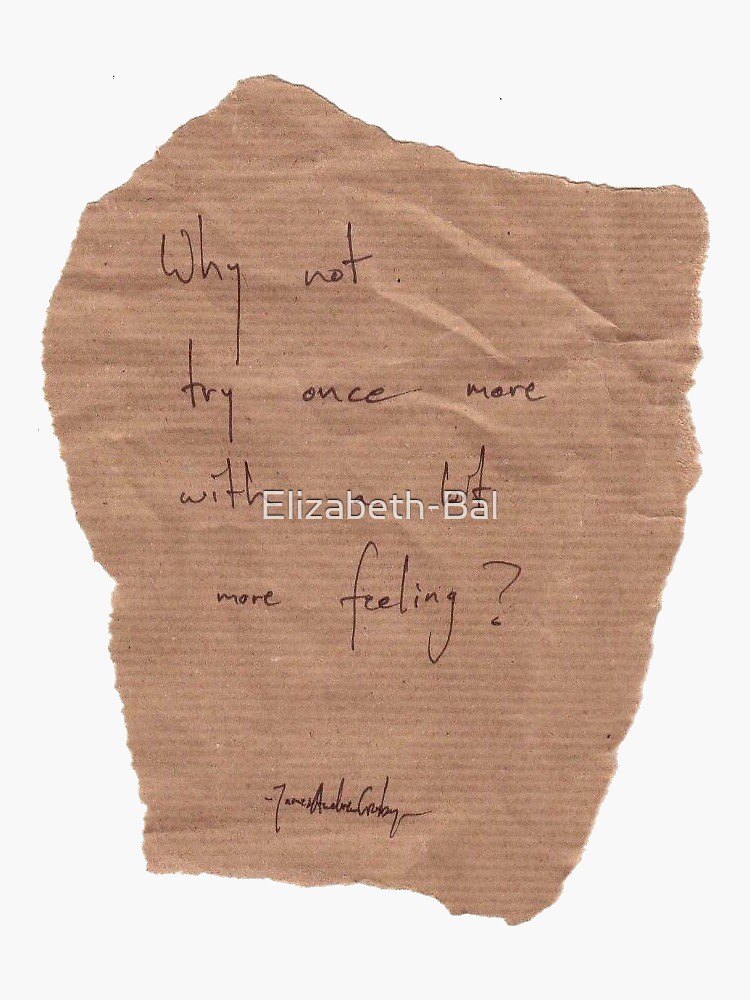 Why not
try once more
with a bit
Elizabeth-Bal
more feeling?
- James Andrew Crosby